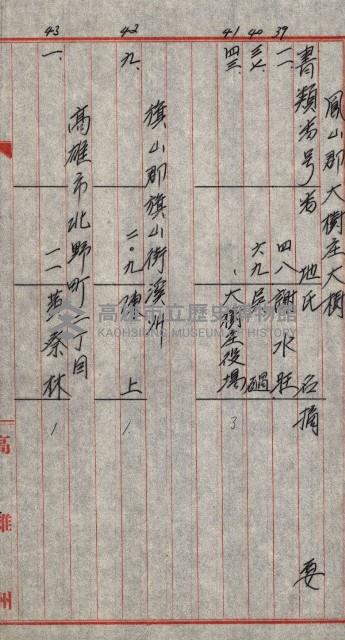 鳳山郡大樹庄大樹
書類番号 番地 氏名 摘要
39 一一 四八 謝水旺
40 三七 六九 呂
41 四三 、 大樹庄役場 3
旗山郡旗山街溪州
42 九 二〇九 陳 上 1
高雄市北野町二丁目
43 一 一一 黃泰林 1
高雄州
高雄市立歷史博物館
KAOHSIUNG MUSEUM OF HISTORY